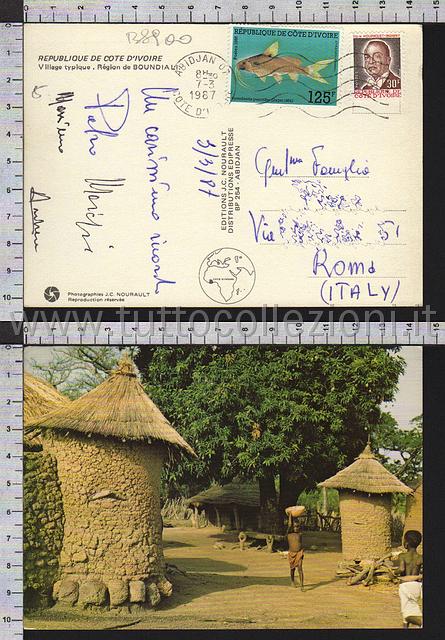 B8900
REPUBLIQUE DE COTE D'IVOIRE
Village typique. Région de BOUNDIALI
REPUBLIQUE DE CÔTE D'IVOIRE
125F
ABIDJAN
8H30
7-3
1987
CÔTE D'I
30F
CÔTE D'IVOIRE
Un carissimo ricordo
Pietro
Massimo
Andrea
3/3/87
EDITIONS J.C. NOURAULT
DISTRIBUTIONS EDIPRESSE
BP 254 - ABIDJAN
Famiglia
Via 51
Roma
(ITALY)
Photographies J.C. NOURAULT
Reproduction réservée
www.tuttocollezioni.it